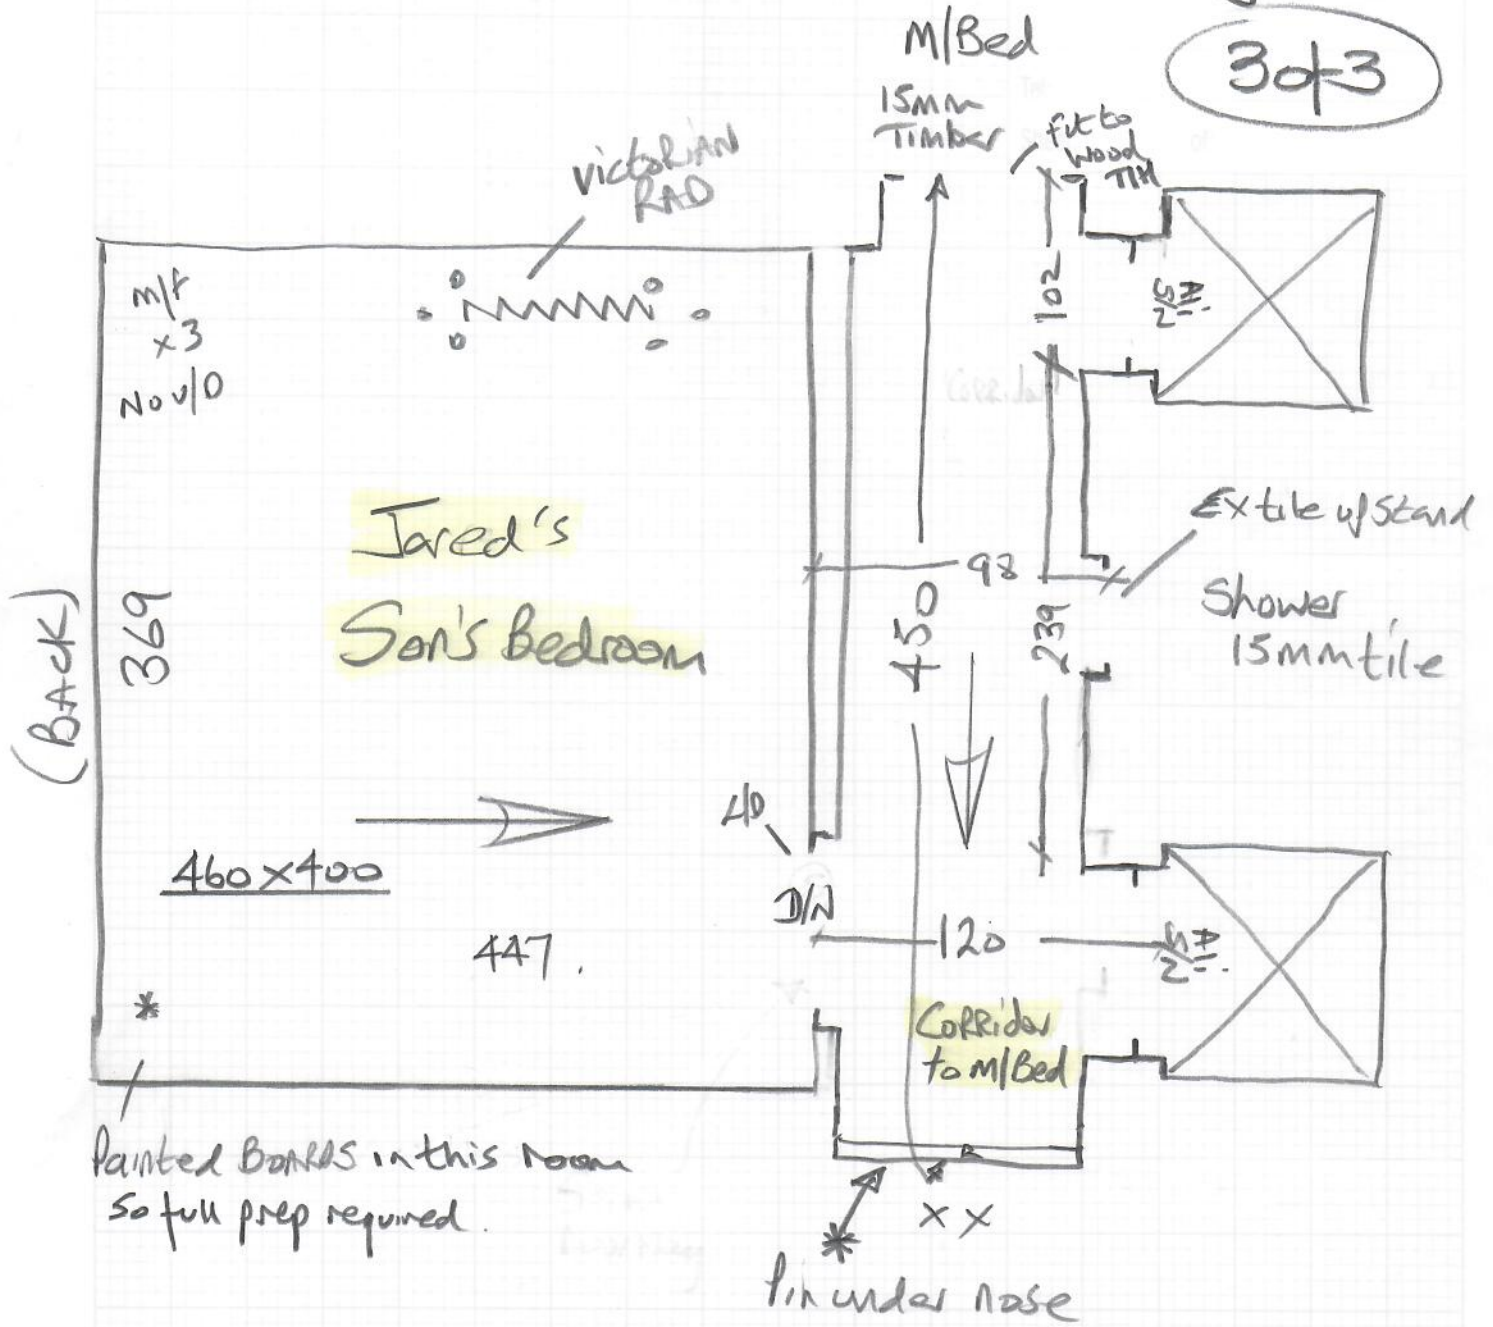 3of3
M/Bed
15mm
Timber
fit to
wood
TIM
victoRiAN
RAD
m/f
x3
No U/D
102
Jared's
Son's Bedroom
(BACK)
369
98
450
239
Ex tile upstand
Shower
15mm tile
L/D
D/N
460x400
447.
120
*
Corridor
to M/Bed
Painted BOARDS in this room
so full prep required.
xx
*
Pin under nose